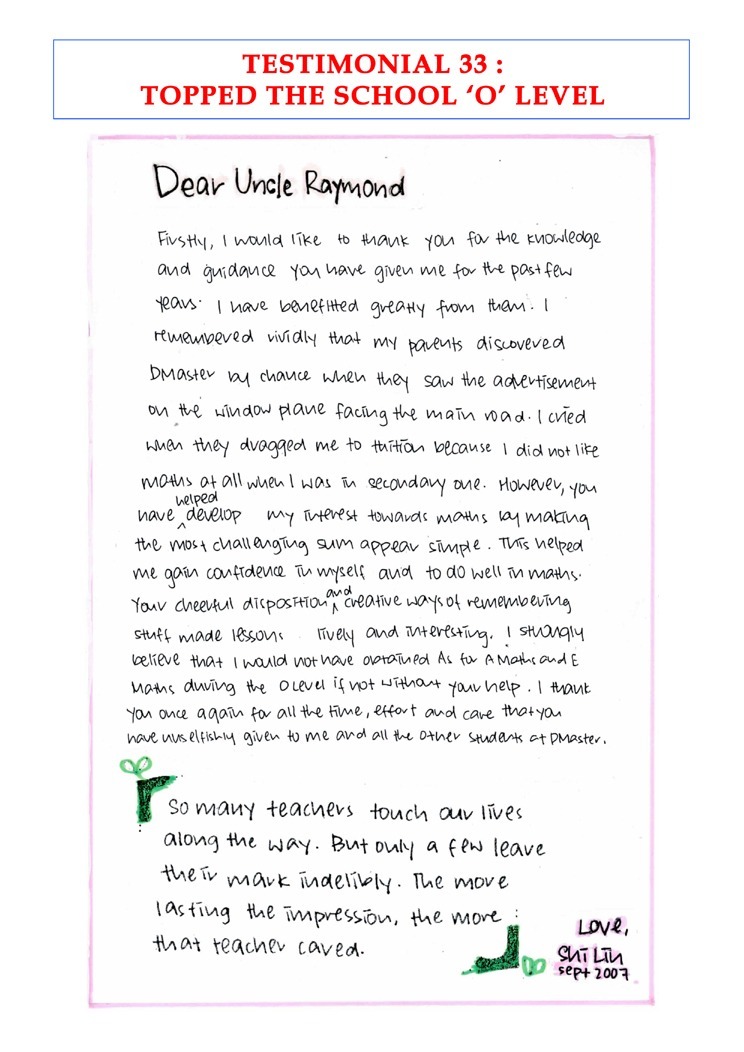 TESTIMONIAL 33 :
TOPPED THE SCHOOL ‘O’ LEVEL
Dear Uncle Raymond
Firstly, I would like to thank you for the knowledge
and guidance you have given me for the past few
years. I have benefitted greatly from them. I
remembered vividly that my parents discovered
DMaster by chance when they saw the advertisement
on the window plane facing the main road. I cried
when they dragged me to tuition because I did not like
maths at all when I was in secondary one. However, you
have helped develop my interest towards maths by making
the most challenging sum appear simple. This helped
me gain confidence in myself and to do well in maths.
Your cheerful disposition and creative ways of remembering
stuff made lessons lively and interesting. I strongly
believe that I would not have obtained As for A Maths and E
Maths during the O Level if not without your help. I thank
you once again for all the time, effort and care that you
have unselfishly given to me and all the other students at DMaster.
So many teachers touch our lives
along the way. But only a few leave
their mark indelibly. The more
lasting the impression, the more
that teacher cared.
Love,
Shi Lin
Sept 2007